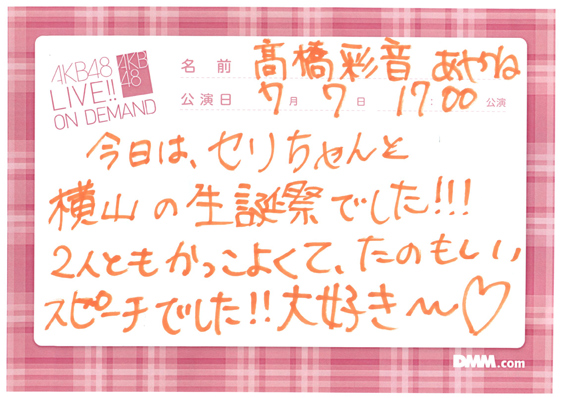 AKB48
LIVE!!
ON DEMAND
AKB
48
名前 髙橋彩音 あやね
公演日 7月7日 17:00公演
今日は、セリちゃんと
横山の生誕祭でした!!!
2人ともかっこよくて、たのもしい
スピーチでした!!大好き〜♡
DMM.com